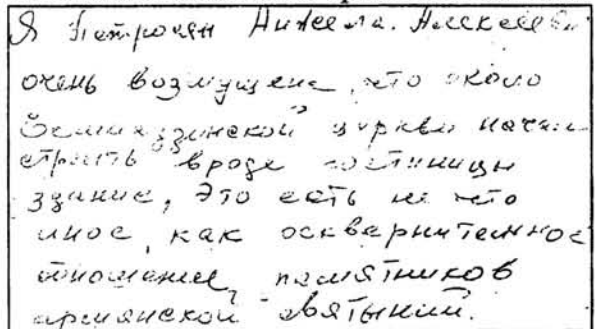 Я Петросян Анжела Алексеевн
очень возмущена, что около
Эчмиадзинской церкви начали
строить вроде гостиницы
здание, Это есть не что
иное, как осквернительное
отношение, памятников
армянской святыний.